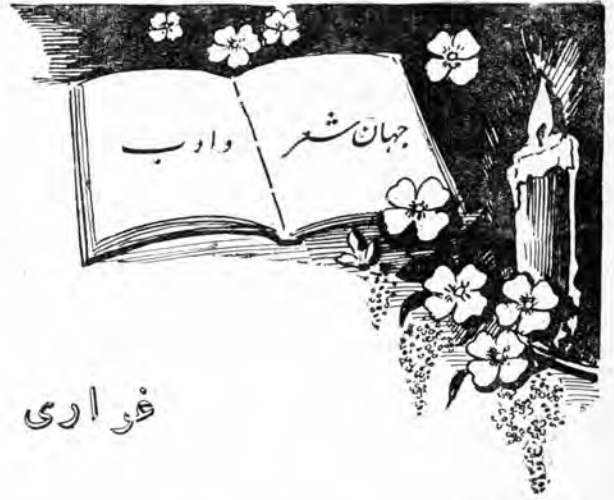 جهان شعر
وادب
فراری